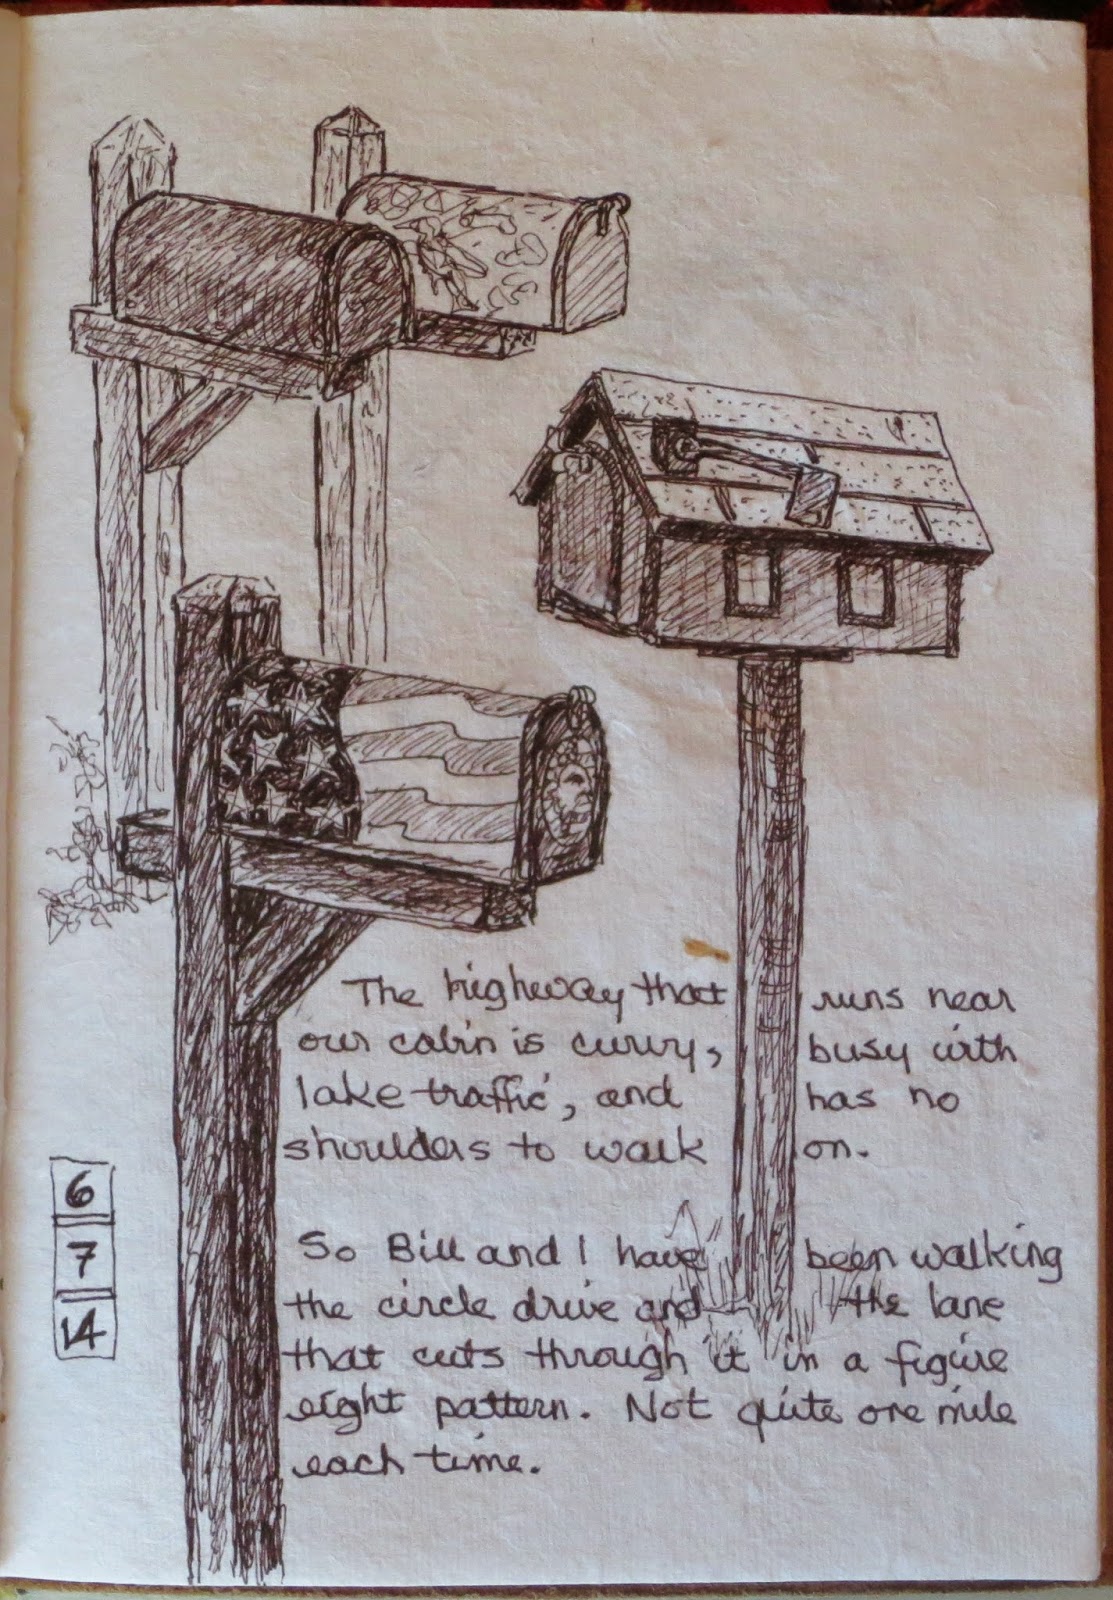 The highway that runs near
our cabin is curvy, busy with
lake traffic, and has no
shoulders to walk on.
So Bill and I have been walking
the circle drive and the lane
that cuts through it in a figure
eight pattern. Not quite one mile
each time.
6
7
14